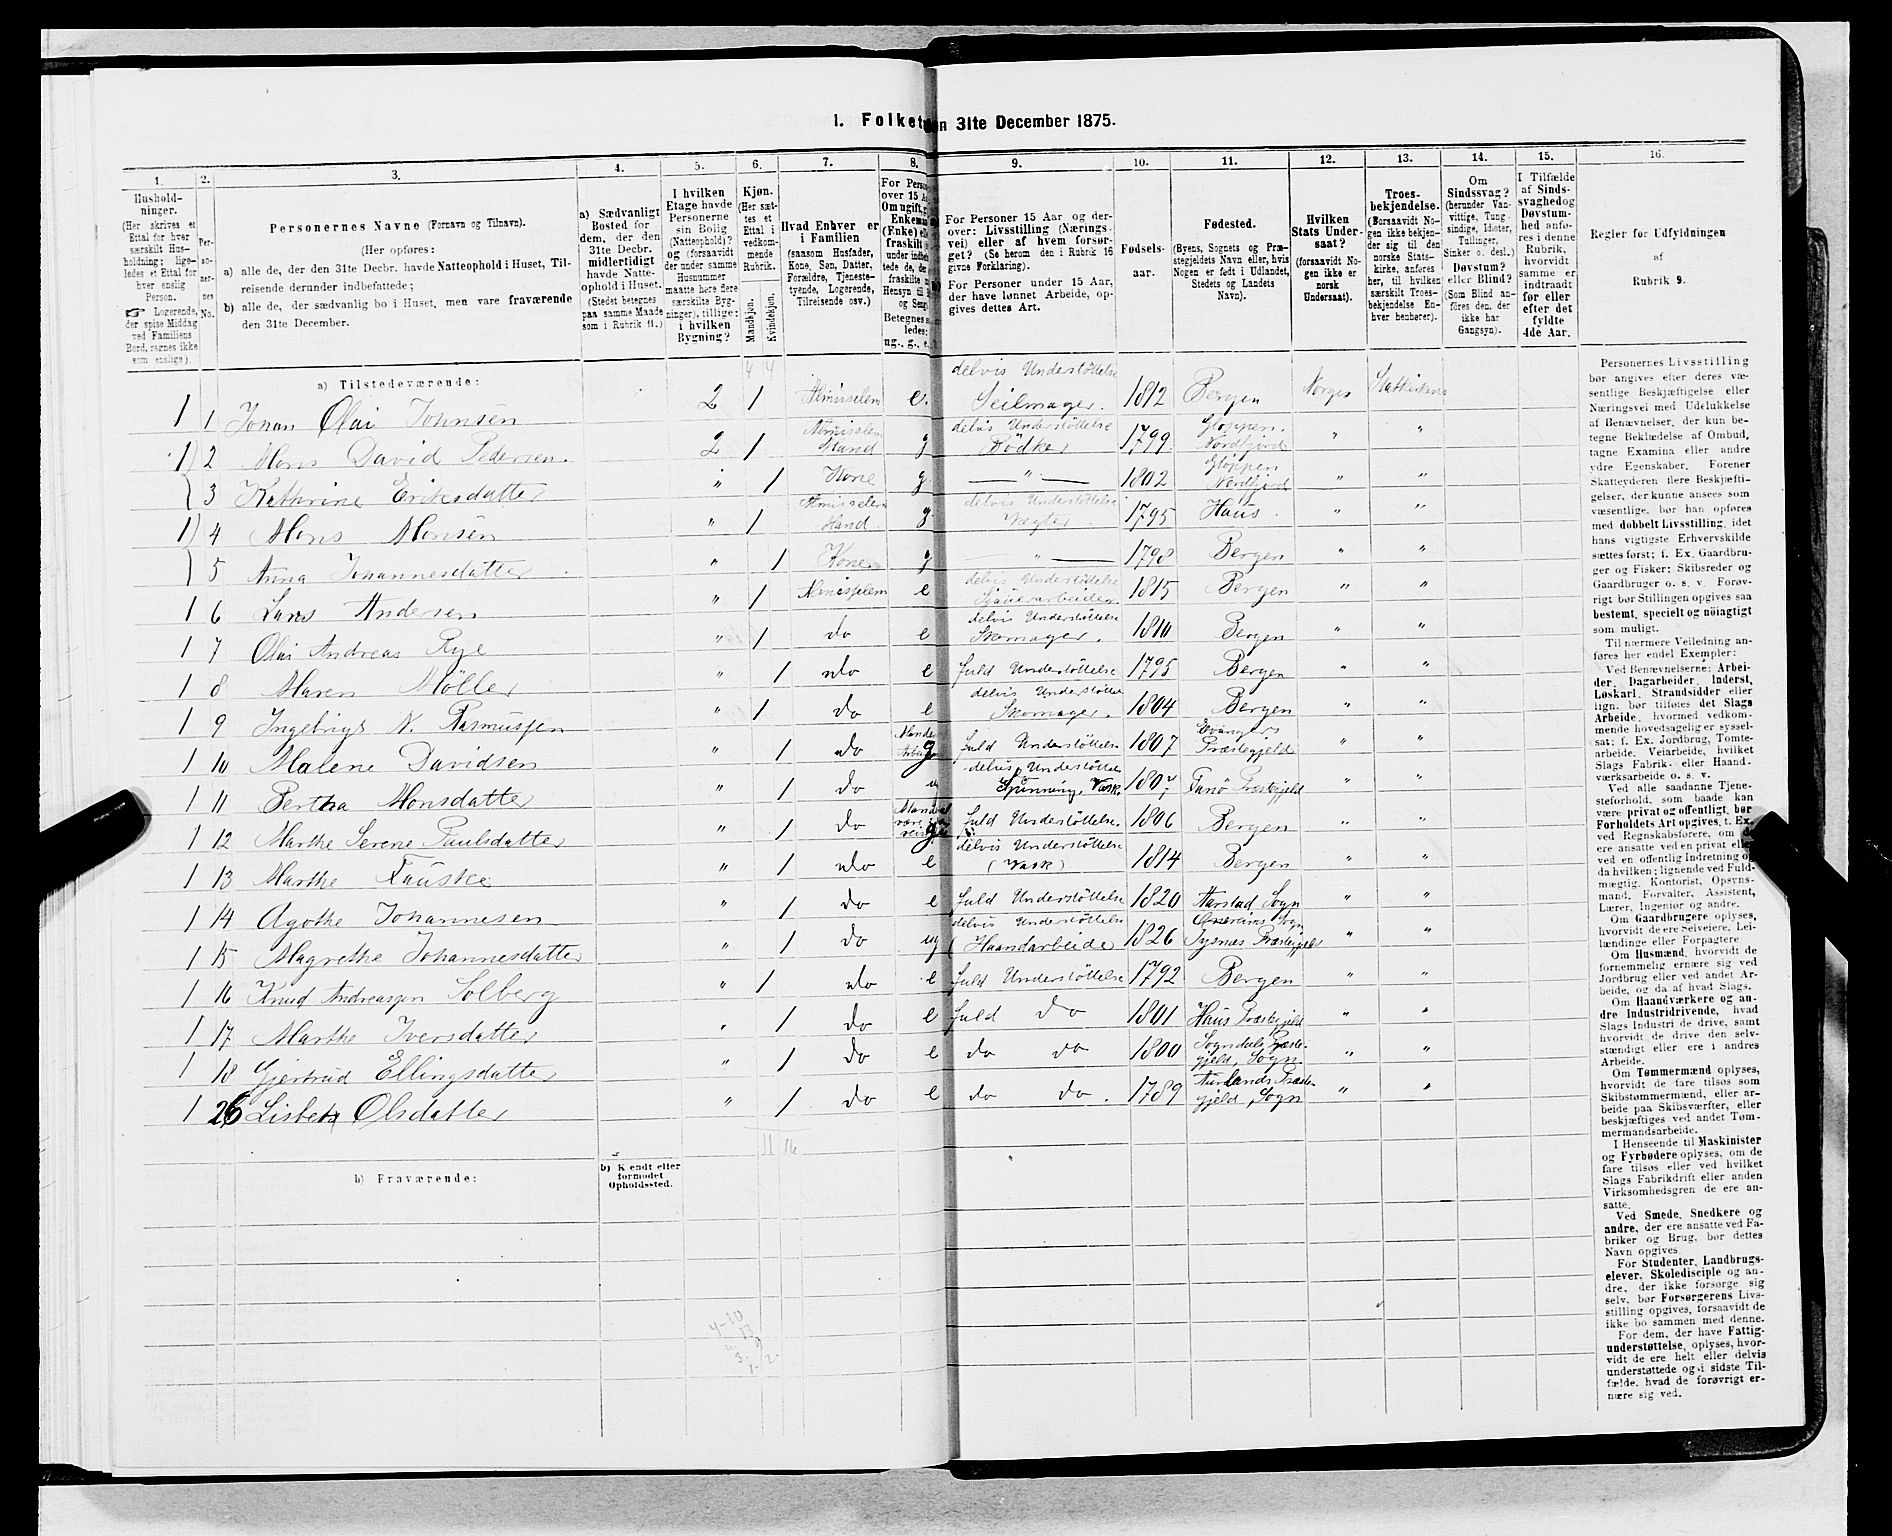 1. Folket
en 31te December 1875.
1. 2. 3. 4. 5. 6. 7. 8. 9. 10. 11. 12. 13. 14. 15. 16.
Hushold-
ninger.
(Her skrives et
Ettal for hver
særskilt Hus-
holdning; lige-
ledes et Ettal for
hver enslig
Person.
☞ Logerende,
der spise Middag
ved Familiens
Bord, regnes ikke
som enslige).
Per-
so-
ner-
nes
No.
Personernes Navne (Fornavn og Tilnavn).
(Her opføres:
a) alle de, der den 31te Decbr. havde Natteophold i Huset, Til-
reisende derunder indbefattede;
b) alle de, der sædvanlig bo i Huset, men vare fraværende
den 31te December.
a) Sædvanligt
Bosted for
dem, der den
31te Decbr.
midlertidigt
havde Natte-
ophold i Huset.
(Stedet betegnes
paa samme Maade
som i Rubrik 11.)
I hvilken
Etage havde
Personerne
sin Bolig
(Natteophold)?
og (forsaavidt
der under samme
Husnummer
maatte høre flere
særskilte Byg-
ninger), tillige:
i hvilken
Bygning?
Kjøn.
(Her sæt-
tes et
Ettal i
vedkom-
mende
Rubrik.
Mandkjøn.
Kvindekjøn.
Hvad Enhver er
i Familien
(saasom Husfader,
Kone, Søn, Datter,
Forældre, Tjeneste-
tyende, Logerende,
Tilreisende osv.)
For Person
over 15 A
Om ugift, g
Enkem
(Enke) el
fraskilt
under indbe
tede de, der
fraskilte
Hensyn til
og Seng
Betegnes
ledes:
ug., g., e.
For Personer 15 Aar og der-
over: Livsstilling (Nærings-
vei) eller af hvem forsør-
get? (Se herom den i Rubrik 16
givne Forklaring).
For Personer under 15 Aar,
der have lønnet Arbeide, op-
gives dettes Art.
Fødsels-
aar.
Fødested.
(Byens, Sognets og Præ-
stegjeldets Navn eller, hvis
Nogen er født i Udlandet,
Stedets og Landets
Navn).
Hvilken
Stats Under-
saat?
(forsaavidt No-
gen ikke er
norsk
Undersaat).
Troes-
bekjendelse.
(Forsaavidt No-
gen ikke bekjen-
der sig til den
norske Stats-
kirke, anføres
her, til hvilken
særskilt Troes-
bekjendelse En-
hver henhører).
Om
Sindssvag?
(herunder Van-
vittige, Tung-
sindige, Idioter,
Tullinger,
Sinker o. desl.)
Døvstum?
eller Blind?
(Som Blind an-
føres den, der
ikke har
Gangsyn).
I Tilfælde
af Sinds-
svaghed og
Døvstum-
hed anfø-
res i denne
Rubrik,
hvorvidt
samme er
indtraadt
før eller
efter det
fyldte
4de Aar.
Regler for Udfyldningen
af
Rubrik 9.
a) Tilstedeværende:
1 1 Johan Olai Johnsen 2 1 Almisselem e. delvis Understøttelse Seilmager. 1812 Bergen Norges Statskirken
1 2 Mons David Pedersen. 2 1 Almisselem Mand g delvis Understøttelse Bödker 1799 Gloppen. Nordfjord " "
3 Kathrine Eriksdatter " 1 Kone g — " — 1802 Gloppen Nordfjord " "
1 4 Mons Monsen " 1 Almisselem Mand g delvis Understøttelse Vægter. 1795 Haus. " "
5 Anna Johannesdatter " 1 Kone g " — 1798 Bergen " "
1 6 Lars Andersen " 1 Almisselem e delvis Understøttelse Sjauerarbeider 1815 Bergen " "
1 7 Olai Andreas Rye " 1 do e delvis Understøttelse Skomager. 1810 Bergen " "
1 8 Maren Möller " 1 do e fuld Understöttelse 1795 Bergen " "
1 9 Ingebrigt N. Rasmussen " 1 do e delvis Understöttelse Skomager. 1804 Bergen " "
1 10 Malene Davidsen " 1 do g fuld Understöttelse 1807 Evangers Præstegjeld " "
1 11 Bertha Monsdatter " 1 do delvis Understöttelse Spinning, Vask. 180 Fanø Præstegjeld " "
1 12 Marthe Serene Paulsdatter " 1 do g fuld Understöttelse. 1806 Bergen " "
1 13 Marthe Fauske " 1 do e delvis Understöttelse (Vask) 1814 Bergen " "
1 14 Agothe Johannesen " 1 do e fuld Understöttelse 1820 Aarstad Sogn " "
1 15 Magrethe Johannesdatter " 1 do ug delvis Understöttelse (Haandarbeide) 1826 Sogn Tysnæs Præstegjeld " "
1 16 Knud Andreassen Solberg " 1 do e fuld Understöttelse 1792 Bergen " "
1 17 Marthe Iversdatter " 1 do e fuld do 1801 Haus Præstegjeld " "
1 18 Gjertrud Ellingsdatter " 1 do e do do 1800 Sogndals Præste- gjeld, Sogn. " "
1 26 Lisbeth Olsdatter " 1 do e do do. 1789 Aurlands Præste- gjeld, Sogn " "
11 16
b) Fraværende:
b) K endt eller
formodet
Opholdssted.
4-10
Personernes Livsstilling
bør angives efter deres væ-
sentlige Beskjæftigelse eller
Næringsvei med Udelukkelse
af Benævnelser, der kun be-
tegne Beklædelse af Ombud,
tagne Examina eller andre
ydre Egenskaber. Forener
Skatteyderen flere Beskjæfti-
gelser, der kunne ansees som
væsentlige, bør han opføres
med dobbelt Livsstilling, idet
hans vigtigste Erhvervskilde
sættes først; f. Ex. Gaardbru-
ger og Fisker; Skibsreder og
Gaardbruger o. s. v. Forøv-
rigt bør Stillingen opgives saa
bestemt, specielt og nöiagtig
som muligt.
Til nærmere Veiledning an-
føres her endel Exempler:
Ved Benævnelserne: Arbei-
der, Dagarbeider, Inderst,
Løskarl, Strandsidder eller
lign. bør tilføies det Slags
Arbeide, hvormed vedkom-
mende hovedsagelig er syssel-
sat; f. Ex. Jordbrug, Tomte-
arbeide, Veiarbeide, hvilket
Slags Fabrik- eller Haand-
værksarbeide o. s. v.
Ved alle saadanne Tjene-
steforhold, som baade kan
være privat og offentligt, bør
Forholdets Art opgives, t. Ex.
ved Regnskabsførere, om d
ere ansatte ved en privat elle
ved en offentlig Indretning og
da hvilken; lignende ved Fuld-
mægtig, Kontorist, Opsyns-
mand, Forvalter, Assistent,
Lærer, Ingeniør og andre.
Om Gaardbrugere oplyses,
hvorvidt de ere Selveiere, Lei-
lændinge eller Forpagtere
Om Husmænd, hvorvidt de
fornemmelig ernære sig ved
Jordbrug eller ved andet Ar-
beide, og da af hvad Slags.
Om Haandværkere og an-
dre Industridrivende, hvad
Slags Industri de drive, samt
hvorvidt de drive den selv-
stændigt eller ere i andres
Arbeide.
Om Tømmermænd oplyses,
hvorvidt de fare tilsøs som
Skibstømmermænd, eller ar-
beide paa Skibsværfter, eller
beskjæftiges ved andet Tøm-
mermandsarbeide.
I Henseende til Maskinister
og Fyrbødere oplyses, om de
fare tilsøs eller ved hvilket
Slags Fabrikdrift eller anden
Virksomhedsgren de ere an-
satte.
Ved Smede, Snedkere og
andre, der ere ansatte ved Fa-
briker og Brug, bør dettes
Navn opgives.
For Studenter, Landbrugs-
elever, Skoledisciple og an-
dre, der ikke forsørge sig
selv, bør Forsørgerens Livs-
stilling opgives, forsaavidt de
ikke bo sammen med denne.
For dem, der have Fattig-
understøttelse, oplyses, hvor-
vidt de ere helt eller delvis
understøttede og i sidste Til-
fælde, hvad de forøvrigt er-
nære sig ved.